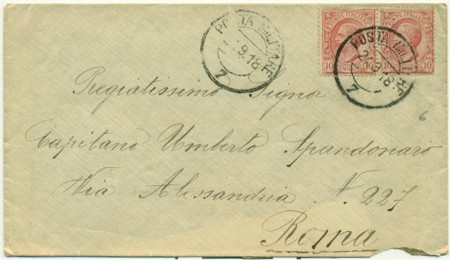 POSTA MILITARE
9.18
7
POSTE ITALIANE
10 10
POSTA MILITARE
9.18
7
Pregiatissimo Signor
Capitano Umberto Spandonaro
Via Alessandria N. 227
Roma
6